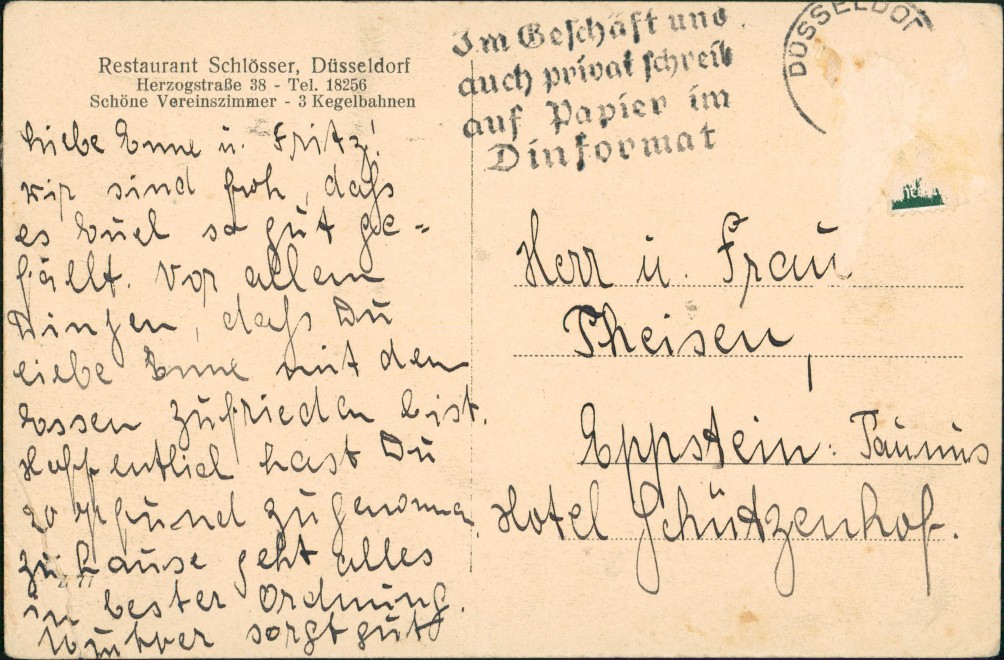 Restaurant Schlösser, Düsseldorf
Herzogstraße 38 - Tel. 18256
Schöne Vereinszimmer - 3 Kegelbahnen
Im Geschäft und
auch privat schreib
auf Papier im
Dinformat
DÜSSELDORF
Liebe Enne u. Fritz!
wir sind froh, daß
es Euch so gut ge=
fällt. Vor allem
Dingen, daß Du
liebe Enne mit dem
Essen zufrieden bist.
Hoffentlich hast Du
20 Pfund zugenomm
zu Hause geht alles
in bester Ordnung.
Mutter sorgt gut
Herr u. Frau
Theisen,
Eppstein: Taunus
Hotel Schützenhof.